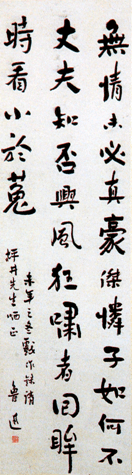 無情未必真豪傑憐子如何不
丈夫知否興風狂嘯者回眸
時看小於菟
未年之冬戲作錄請
坪井先生哂正 魯迅